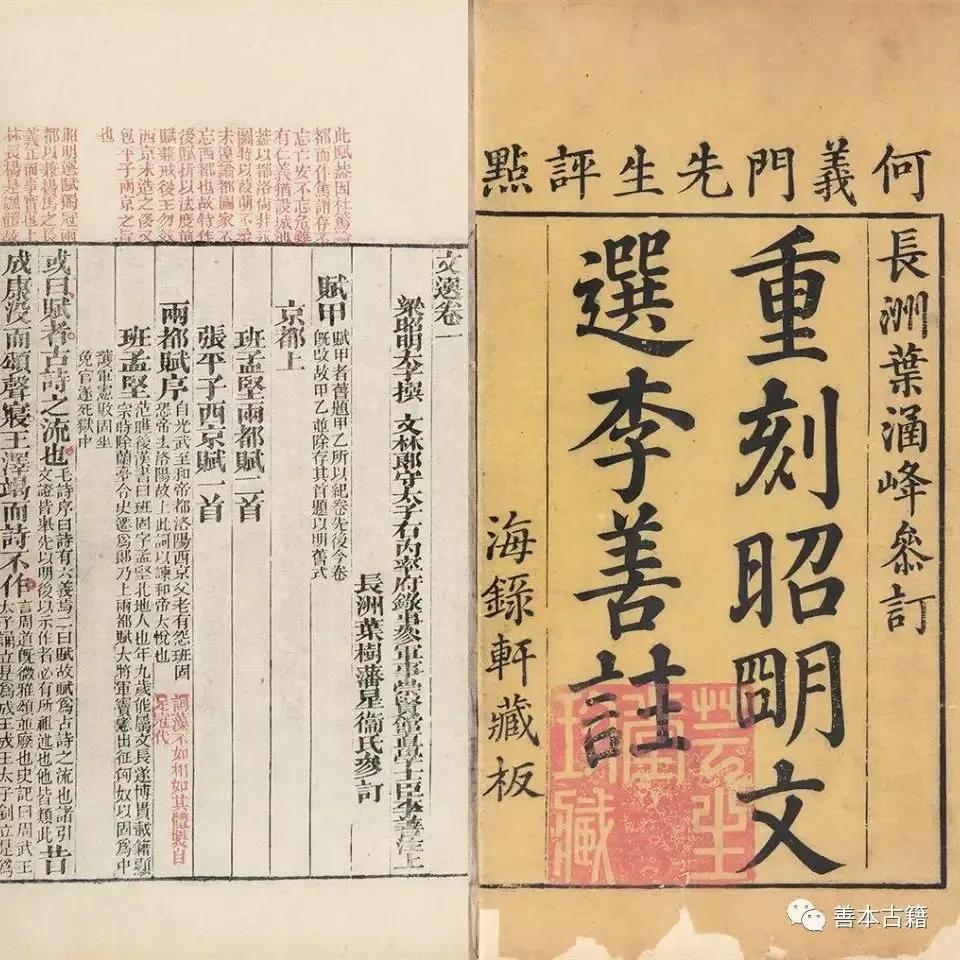 何義門先生評點
長洲葉涵峰叅訂
重刻昭明文
選李善註
海錄軒藏板
文選卷一
梁昭明太子撰 文林郎守太子右內率府錄事參軍事崇賢館直學士臣李善注上
長洲葉樹藩星衞氏叅訂
賦甲 賦甲者舊題甲乙所以紀卷先後今卷
既改故甲乙並除存其首題以明舊式
京都上
班孟堅兩都賦二首
張平子西京賦一首
兩都賦序 自光武至和帝都洛陽西京父老有怨班固
恐帝去洛陽故上此詞以諫和帝大悅也
班孟堅 范曄後漢書曰班固字孟堅北地人也年九歲能屬文長遂博貫載籍顯
宗時除蘭臺令史遷為郎乃上兩都賦大將軍竇憲出征匈奴以固為中
護軍憲敗固坐
免官遂死獄中
或曰賦者古詩之流也 毛詩序曰詩有六義焉二曰賦故賦為古詩之流也諸引
文證皆舉先以明後以示作者必有所祖述也他皆類此 昔
成康沒而頌聲寢王澤竭而詩不作 言周道既微雅頌並廢也史記曰周武王
太子誦立是為成王成王太子釗立是為
善本古籍